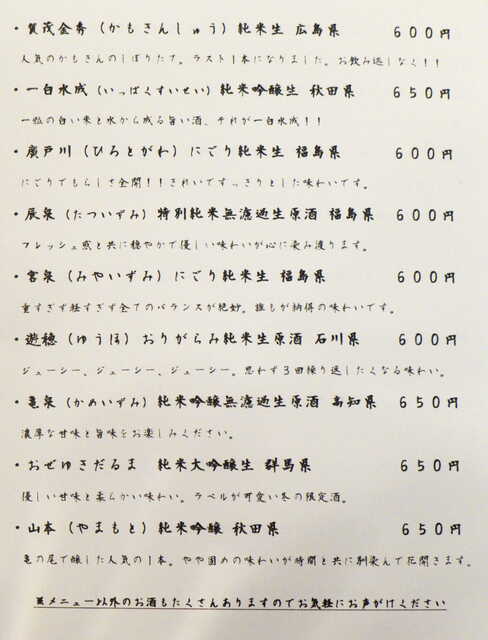 ・賀茂金秀（かもきんしゅう）純米生 広島県 600円
人気のかもきんのしぼりたて。ラスト1本になりました。お飲み逃しなく！！
・一白水成（いっぱくすいせい）純米吟醸生 秋田県 650円
一粒の白い米と水から成る旨い酒、それが一白水成！！
・廣戸川（ひろとがわ）にごり純米生 福島県 600円
にごりでもらしさ全開！！きれいですっきりとした味わいです。
・辰泉（たついずみ）特別純米無濾過生原酒 福島県 600円
フレッシュ感と共に穏やかで優しい味わいが心に染み渡ります。
・宮泉（みやいずみ）にごり純米生 福島県 600円
重すぎず軽すぎず全てのバランスが絶妙。誰もが納得の味わいです。
・遊穂（ゆうほ）おりがらみ純米生原酒 石川県 600円
ジューシー、ジューシー、ジューシー。思わず3回繰り返したくなる味わい。
・亀泉（かめいずみ）純米吟醸無濾過生原酒 高知県 650円
濃厚な甘味と旨味をお楽しみください。
・おぜゆきだるま 純米大吟醸生 群馬県 650円
優しい甘味と柔らかい味わい。ラベルが可愛い冬の限定酒。
・山本（やまもと）純米吟醸 秋田県 650円
亀の尾で醸した人気の1本。やや固めの味わいが時間と共に馴染んで花開きます。
※メニュー以外のお酒もたくさんありますのでお気軽にお声がけください